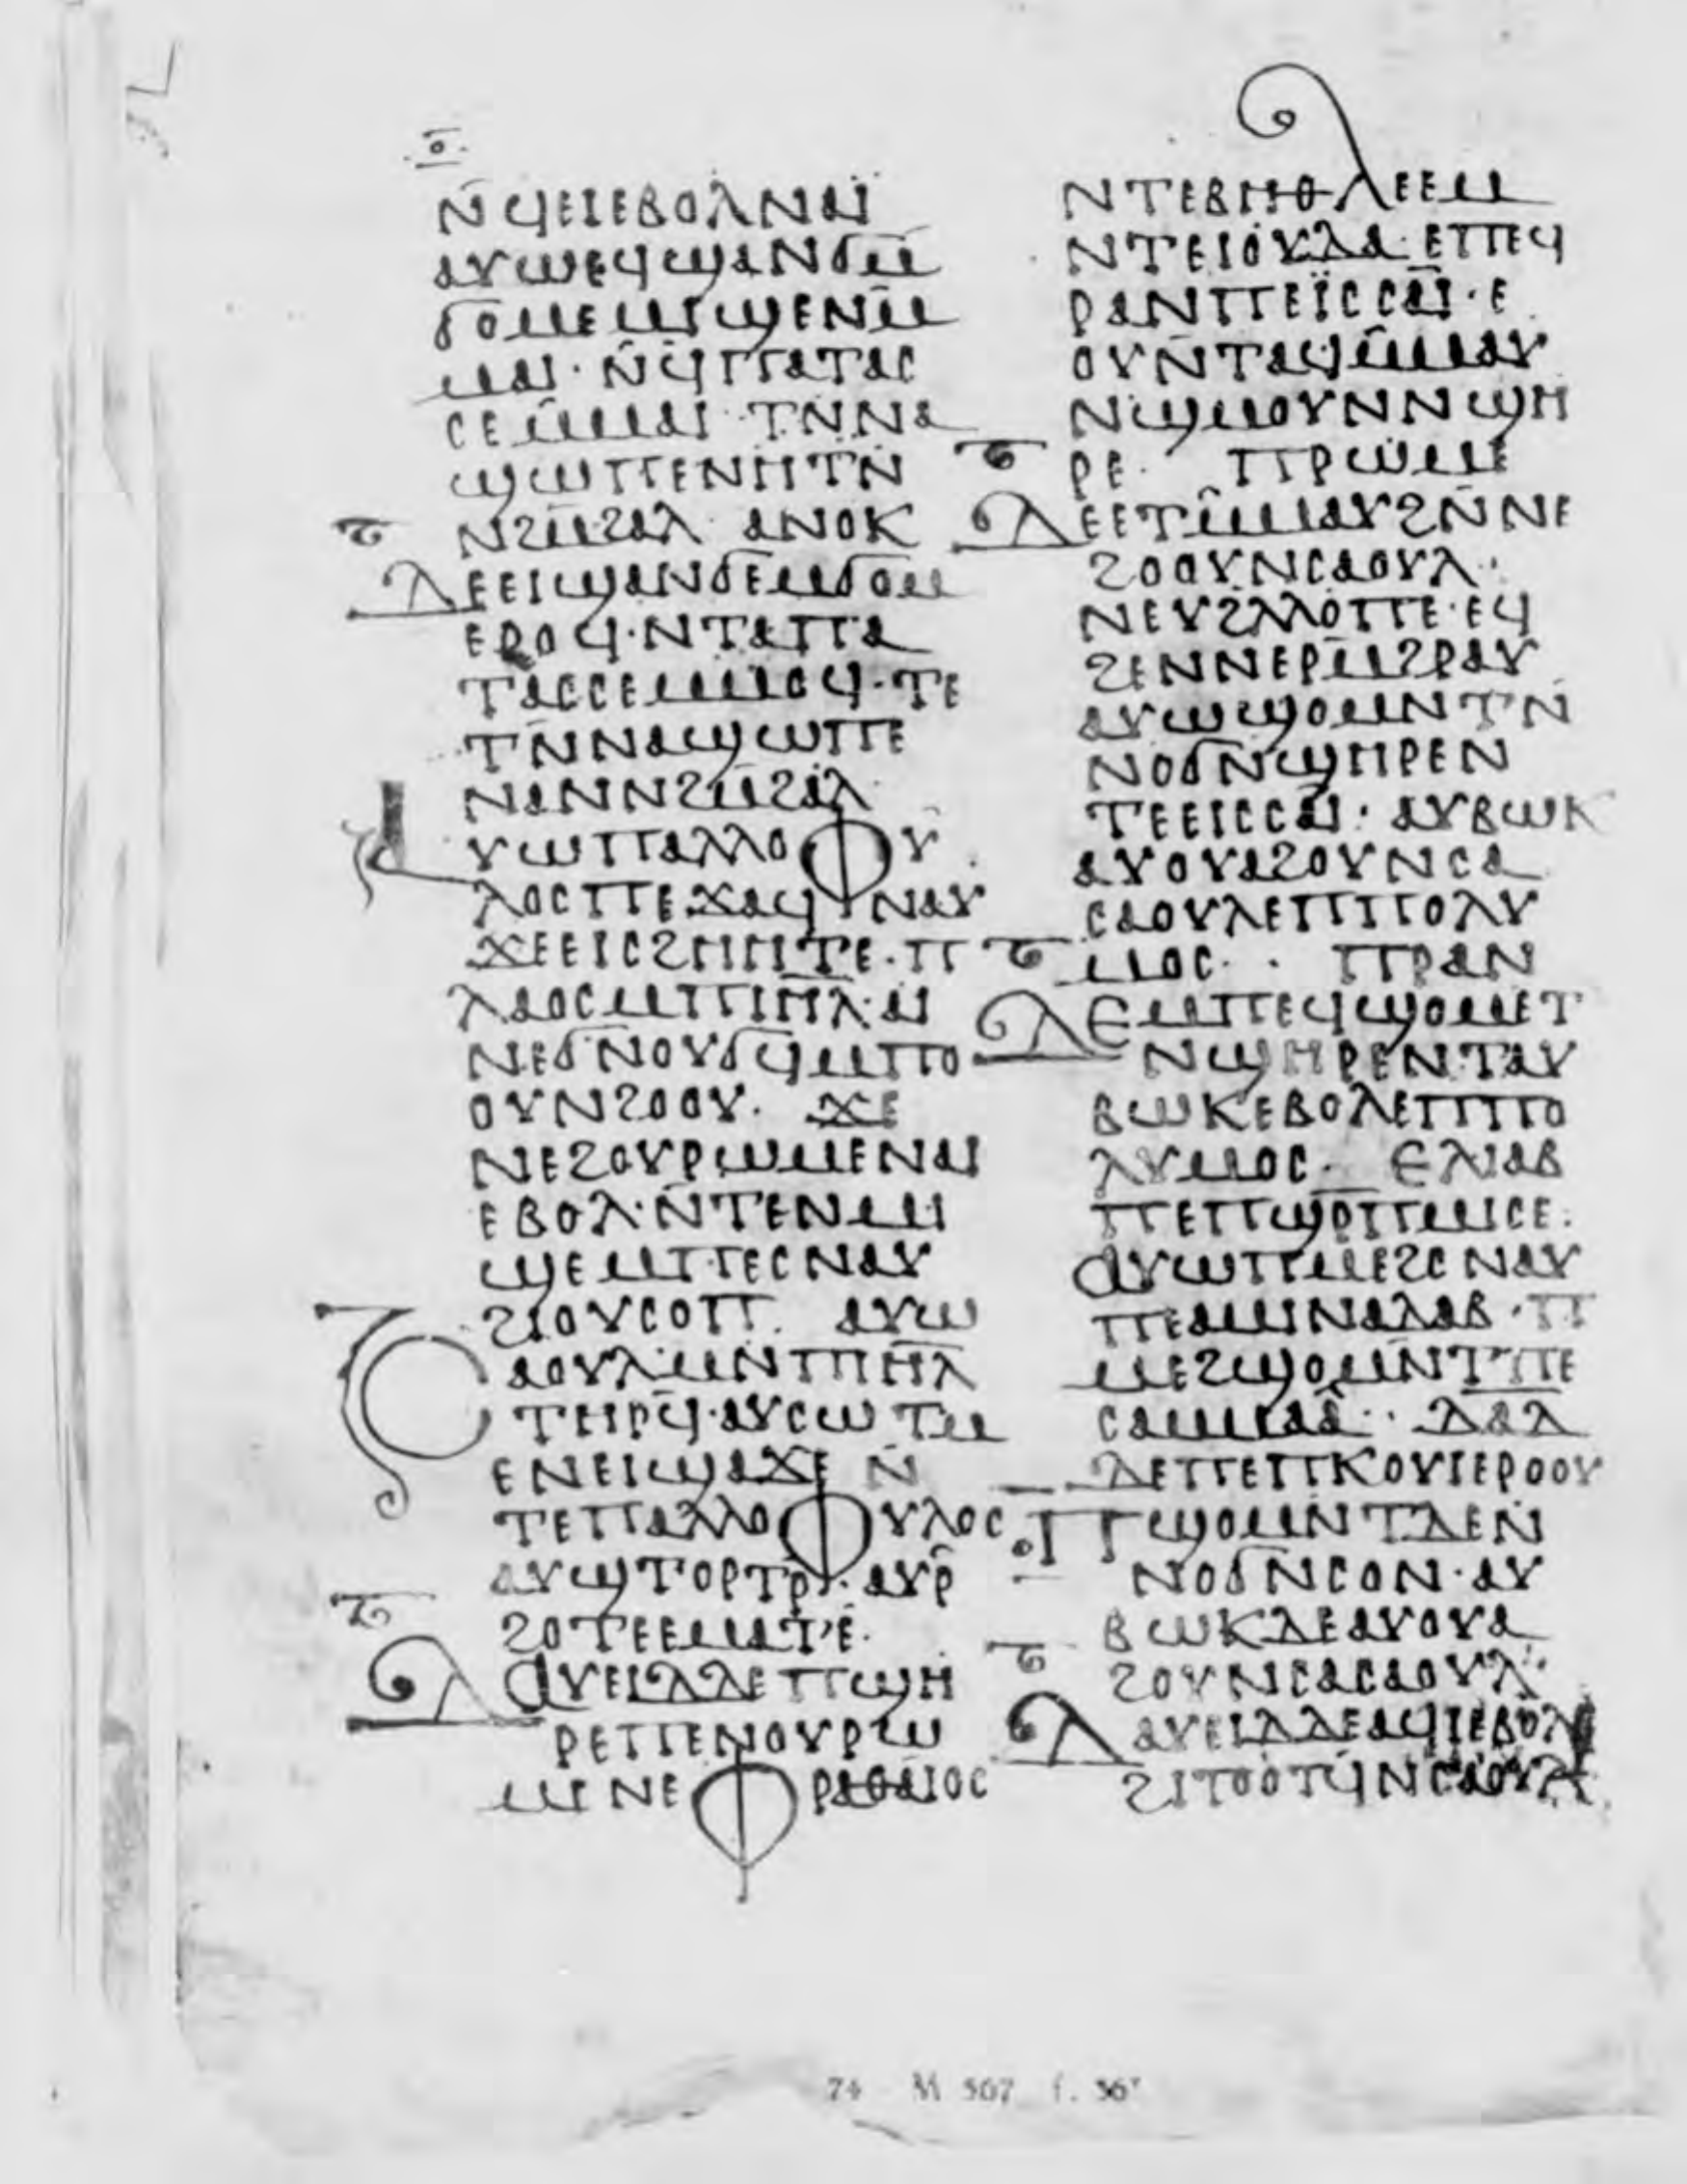 ⲟ̄
Ⲛ̄ϤⲈⲒⲈⲂⲞⲖⲚⲀⲒ̈
ⲀⲨⲰⲈϤϢⲀⲚϬⲘ̄
ϬⲞⲘⲈⲘⲒϢⲈⲚⲘ̄
ⲘⲀⲒ·Ⲛ̄ϤⲠⲀⲦⲀⲤ
ⲤⲈⲘ̄ⲘⲀⲒ ⲦⲚ̄ⲚⲀ
ϢⲰⲠⲈⲚⲎⲦⲚ̄
ⲚϨⲘ̄ϨⲀⲖ ⲀⲚⲞⲔ
ⲆⲈⲈⲒϢⲀⲚϬⲈⲘϬⲞⲘ
ⲈⲢⲞϤ·ⲚⲦⲀⲠⲀ
ⲦⲀⲤⲤⲈⲘ̄ⲘⲞϤ·ⲦⲈ
ⲦⲚ̄ⲚⲀϢⲰⲠⲈ
ⲚⲀⲚⲚϨⲘ̄ϨⲀⲖ
ⲀⲨⲰⲠⲀⲖⲖⲞⲪⲨ
ⲖⲞⲤⲠⲈϪⲀϤ ⲚⲀⲨ
ϪⲈⲈⲒⲤϨⲎⲎⲦⲈ·Ⲡ
ⲖⲀⲞⲤⲘⲠⲒⲎ̄Ⲗ̄·ⲀⲒ
ⲚⲈϬⲚⲞⲨϬϤⲘⲠⲞ
ⲞⲨⲚϨⲞⲞⲨ· ϪⲈ
ⲚⲈϨⲞⲨⲢⲰⲘⲈⲚⲀⲒ
ⲈⲂⲞⲖ·Ⲛ̄ⲦⲈⲚⲘⲒ
ϢⲈⲘⲠⲈⲤⲚⲀⲨ
ϨⲒⲞⲨⲤⲞⲠ· ⲀⲨⲰ
ⲤⲀⲞⲨⲖⲘⲚⲠⲒⲎ̄Ⲗ̄
ⲦⲎⲢϤ̄·ⲀⲨⲤⲰⲦⲘ
ⲈⲚⲈⲒϢⲀϪⲈ Ⲛ̄
ⲦⲈⲠⲀⲖⲖⲞⲪⲨⲖⲞⲤ
ⲀⲨϢⲦⲞⲢⲦⲢ̄·ⲀⲨⲢ̄
ϨⲞⲦⲈⲈⲘⲀⲦⲈ·
ⲆⲀⲨⲈⲒⲆⲆⲈⲠϢⲎ
ⲢⲈⲠⲈⲚⲞⲨⲢⲰ
ⲘⲒⲚⲈⲪⲢⲀⲐⲀⲒⲞⲤ
ⲚⲦⲈⲂⲎⲐⲖⲈⲈⲘ
ⲚⲦⲈⲒⲞⲨⲆⲀ·ⲈⲠⲈϤ
ⲢⲀⲚⲠⲈⲒ̈ⲤⲤⲀⲒ̈·Ⲉ
ⲞⲨⲚ̄ⲦⲀϤⲘ̄ⲘⲀⲨ
ⲚϢⲘⲞⲨⲚⲚϢⲎ
ⲢⲈ· ⲠⲢⲰⲘⲈ
ⲆⲈⲈⲦⲘ̄ⲘⲀⲨϨⲚ̄ⲚⲈ
ϨⲞⲞⲨⲚⲤⲀⲞⲨⲖ·
ⲚⲈⲨϨⲖⲖⲞⲠⲈ·ⲈϤ
ϨⲈⲚⲚⲈⲢⲘ̄ϨⲢⲀⲨ
ⲀⲨⲰϢⲞⲘⲚⲦⲚ̄
ⲚⲞϬⲚϢⲎⲢⲈⲚ
ⲦⲈⲈⲒⲤⲤⲀⲒ· ⲀⲨⲂⲰⲔ
ⲀⲨⲞⲨⲀϨⲞⲨⲚⲤⲀ
ⲤⲀⲞⲨⲖⲈⲠⲠⲞⲖⲨ
ⲘⲞⲤ·· ⲠⲢⲀⲚ
ⲆⲈⲘⲠⲈϤϢⲞⲘⲈⲦ
ⲚϢⲎⲢⲈⲚⲦⲀⲨ
ⲂⲰⲔⲈⲂⲞⲖⲈⲠⲠⲞ
ⲖⲨⲘⲞⲤ· ⲈⲖⲒⲀⲂ
ⲠⲈⲠϢⲢ̄ⲠⲘⲒⲤⲈ·
ⲀⲨⲰⲠⲘⲈϨⲤⲚⲀⲨ
ⲠⲈⲀⲘⲒⲚⲀⲆⲀⲂ·Ⲡ
ⲘⲈϨϢⲞⲘⲚⲦⲠⲈ
ⲤⲀⲘⲘⲀⲀ·· ⲆⲀⲆ
ⲆⲈⲠⲈⲠⲔⲞⲨⲒⲈⲢⲞⲞⲨ
ⲠϢⲞⲘⲚⲦⲆⲈⲚ̄
ⲚⲞϬⲚⲤⲞⲚ·ⲀⲨ
ⲂⲰⲔⲆⲈⲀⲨⲞⲨⲀ
ϨⲞⲨⲚⲤⲀⲤⲀⲞⲨⲖ·
ⲆⲀⲨⲈⲒⲆⲆⲈⲀϤⲒⲈⲂⲞⲖ
ϨⲒⲦⲞⲞⲦϤⲚⲤⲀⲞⲨⲖ
74 M 567 f. 36ᵛ